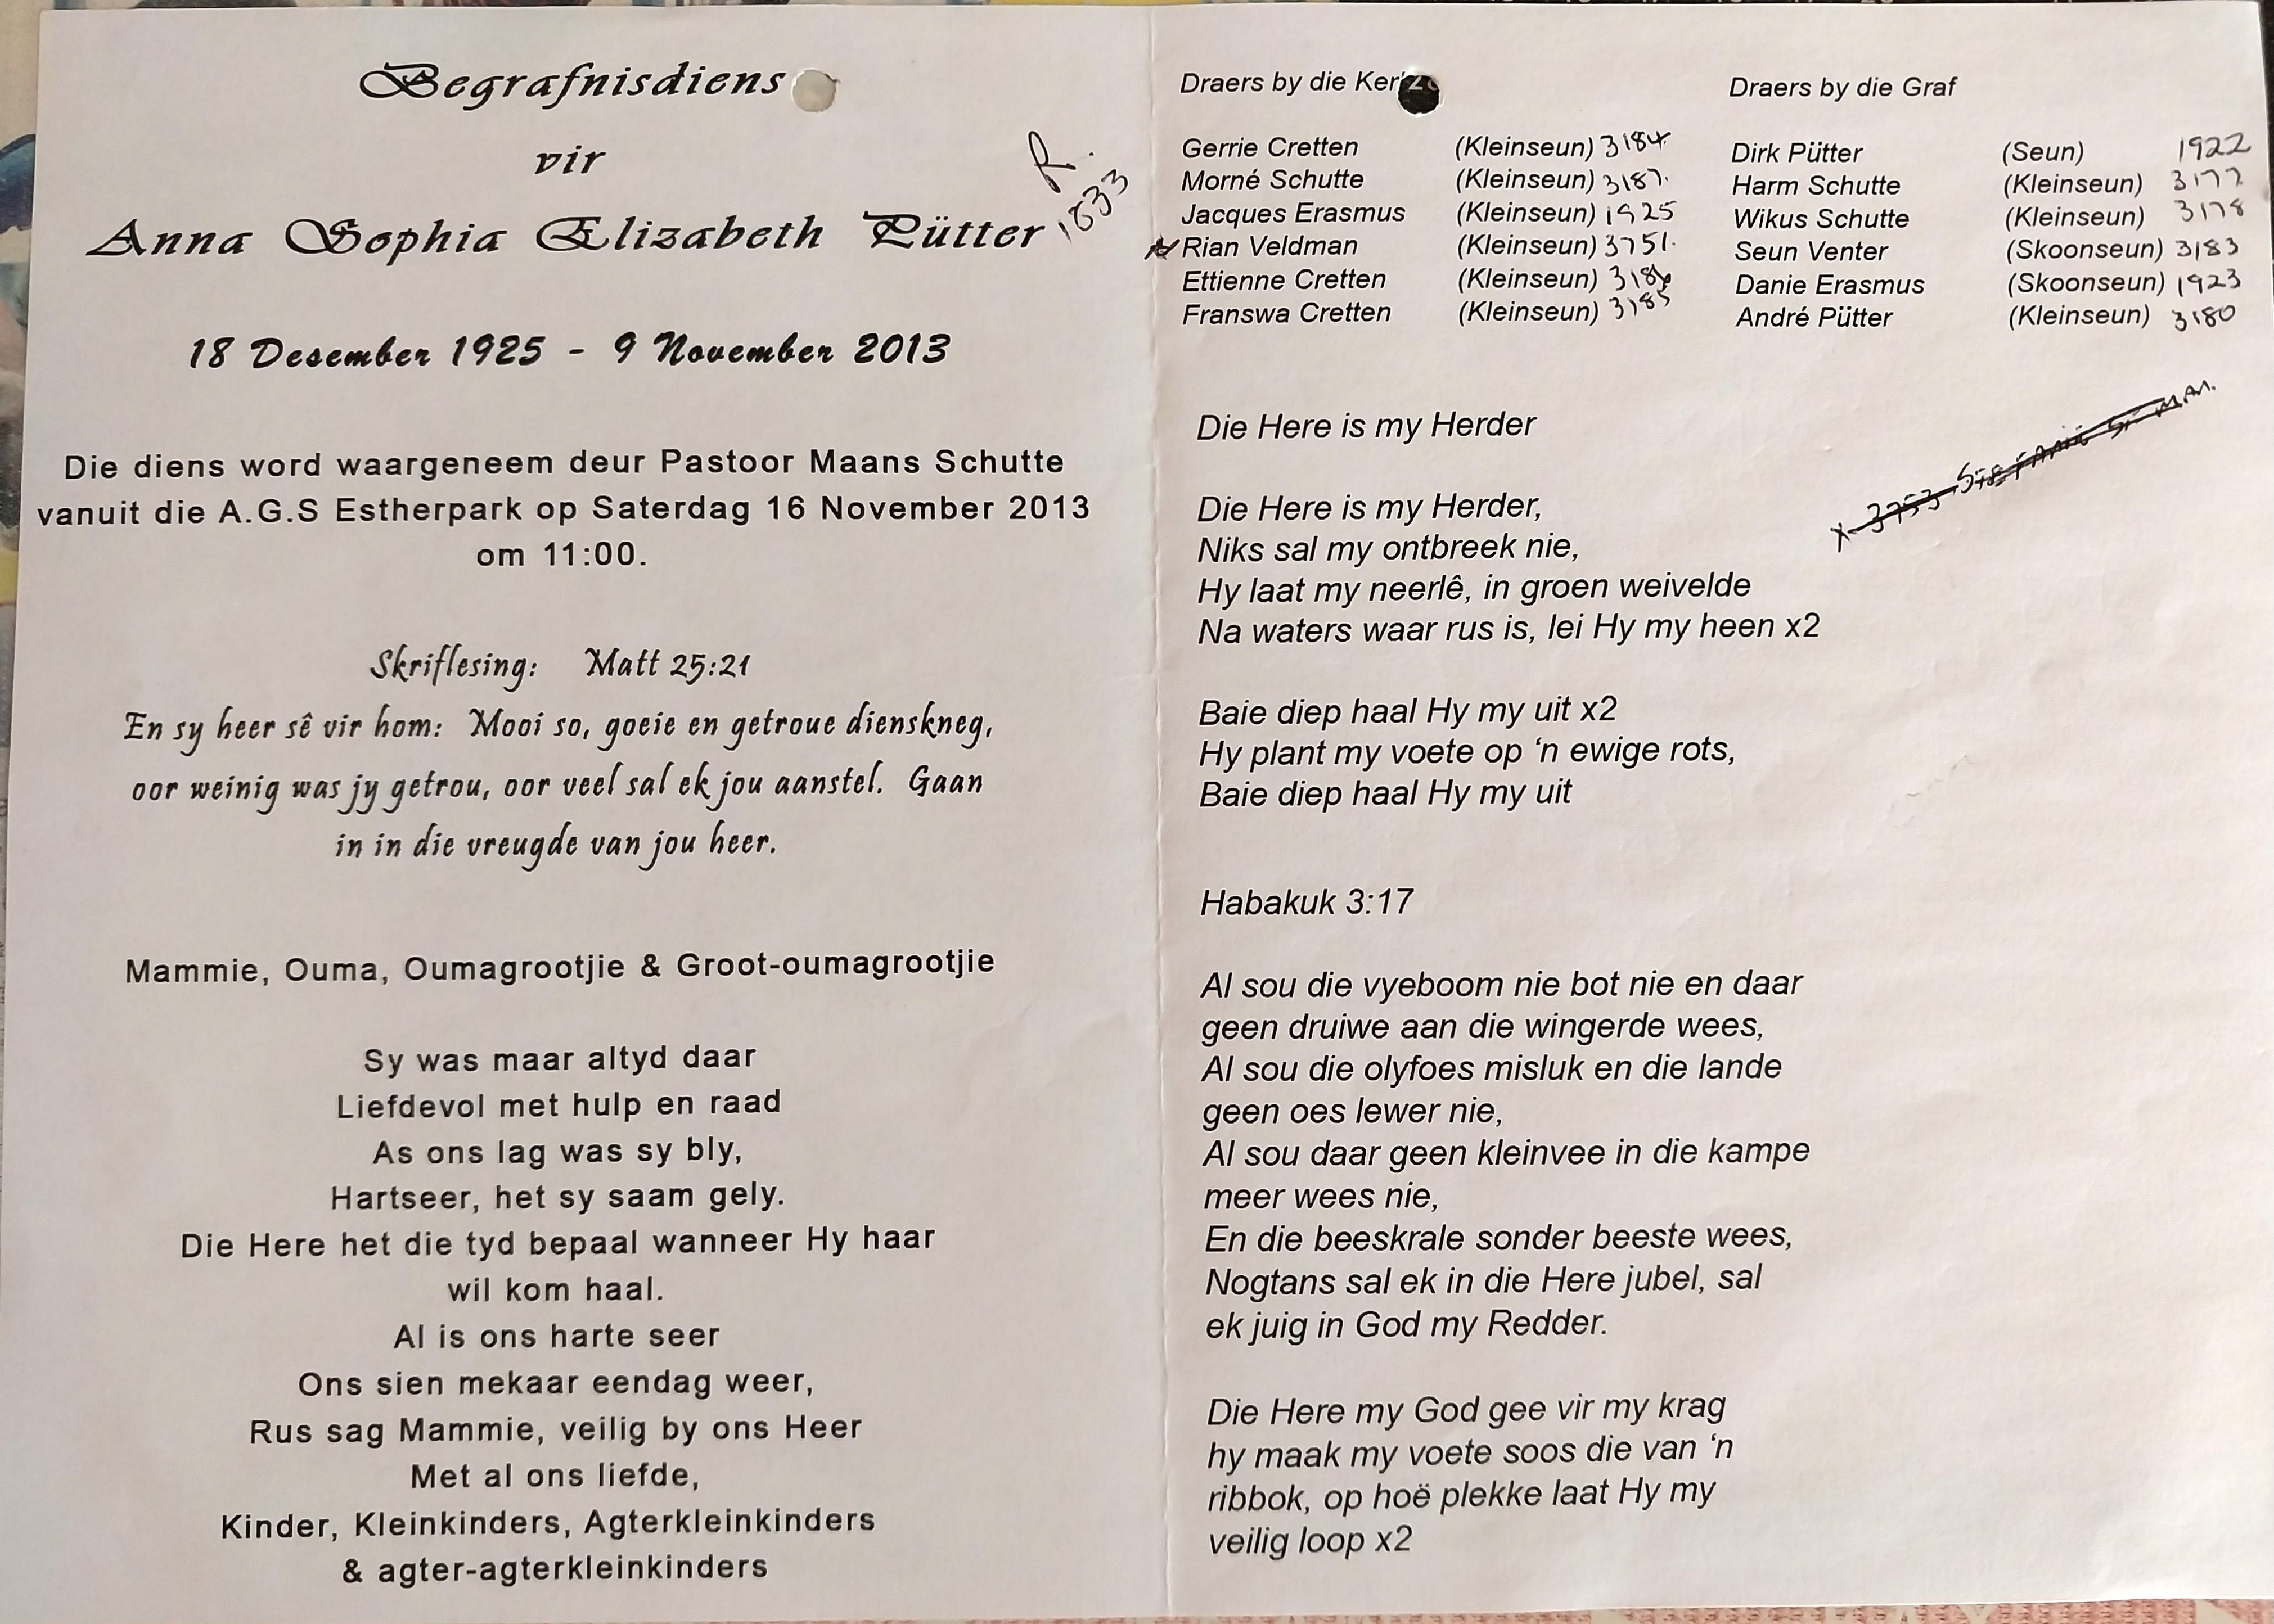 Begrafnisdiens
vir
Anna Sophia Elizabeth Pütter
R.
1833
18 Desember 1925 - 9 November 2013
Die diens word waargeneem deur Pastoor Maans Schutte
vanuit die A.G.S Estherpark op Saterdag 16 November 2013
om 11:00.
Skriflesing: Matt 25:21
En sy heer sê vir hom: Mooi so, goeie en getroue dienskneg,
oor weinig was jy getrou, oor veel sal ek jou aanstel. Gaan
in in die vreugde van jou heer.
Mammie, Ouma, Oumagrootjie & Groot-oumagrootjie
Sy was maar altyd daar
Liefdevol met hulp en raad
As ons lag was sy bly,
Hartseer, het sy saam gely.
Die Here het die tyd bepaal wanneer Hy haar
wil kom haal.
Al is ons harte seer
Ons sien mekaar eendag weer,
Rus sag Mammie, veilig by ons Heer
Met al ons liefde,
Kinder, Kleinkinders, Agterkleinkinders
& agter-agterkleinkinders
Draers by die Ker
Gerrie Cretten (Kleinseun) 3184
Morné Schutte (Kleinseun) 3187.
Jacques Erasmus (Kleinseun) 1925
Rian Veldman (Kleinseun) 3751.
Ettienne Cretten (Kleinseun)
Franswa Cretten (Kleinseun) 3185
Draers by die Graf
Dirk Pütter (Seun) 1922
Harm Schutte (Kleinseun) 3177
Wikus Schutte (Kleinseun) 3178
Seun Venter (Skoonseun) 3183
Danie Erasmus (Skoonseun) 1923
André Pütter (Kleinseun) 3180
x 3753
Die Here is my Herder
Die Here is my Herder,
Niks sal my ontbreek nie,
Hy laat my neerlê, in groen weivelde
Na waters waar rus is, lei Hy my heen x2
Baie diep haal Hy my uit x2
Hy plant my voete op ‘n ewige rots,
Baie diep haal Hy my uit
Habakuk 3:17
Al sou die vyeboom nie bot nie en daar
geen druiwe aan die wingerde wees,
Al sou die olyfoes misluk en die lande
geen oes lewer nie,
Al sou daar geen kleinvee in die kampe
meer wees nie,
En die beeskrale sonder beeste wees,
Nogtans sal ek in die Here jubel, sal
ek juig in God my Redder.
Die Here my God gee vir my krag
hy maak my voete soos die van ‘n
ribbok, op hoë plekke laat Hy my
veilig loop x2